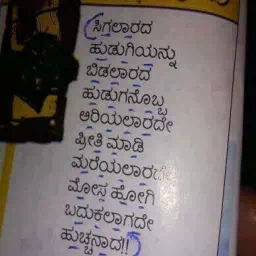 ಸಿಗಲಾರದ
ಹುಡುಗಿಯನ್ನು
ಬಿಡಲಾರದ
ಹುಡುಗನೊಬ್ಬ
ಅರಿಯಲಾರದೇ
ಪ್ರೀತಿ ಮಾಡಿ
ಮರೆಯಲಾರದೆ
ಮೋಸ ಹೋಗಿ
ಬದುಕಲಾಗದೇ
ಹುಚ್ಚನಾದ!!